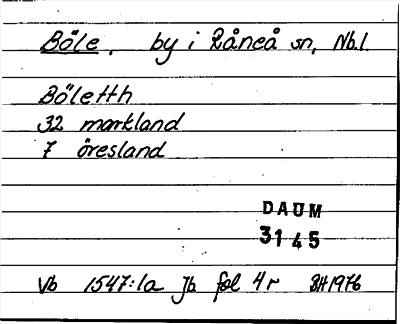 Böle, by i Råneå sn, Nb.l.
Böletth
32 markland
7 öresland
DAUM
3145
Vb 1547:1a Jb fol 4r BH1976